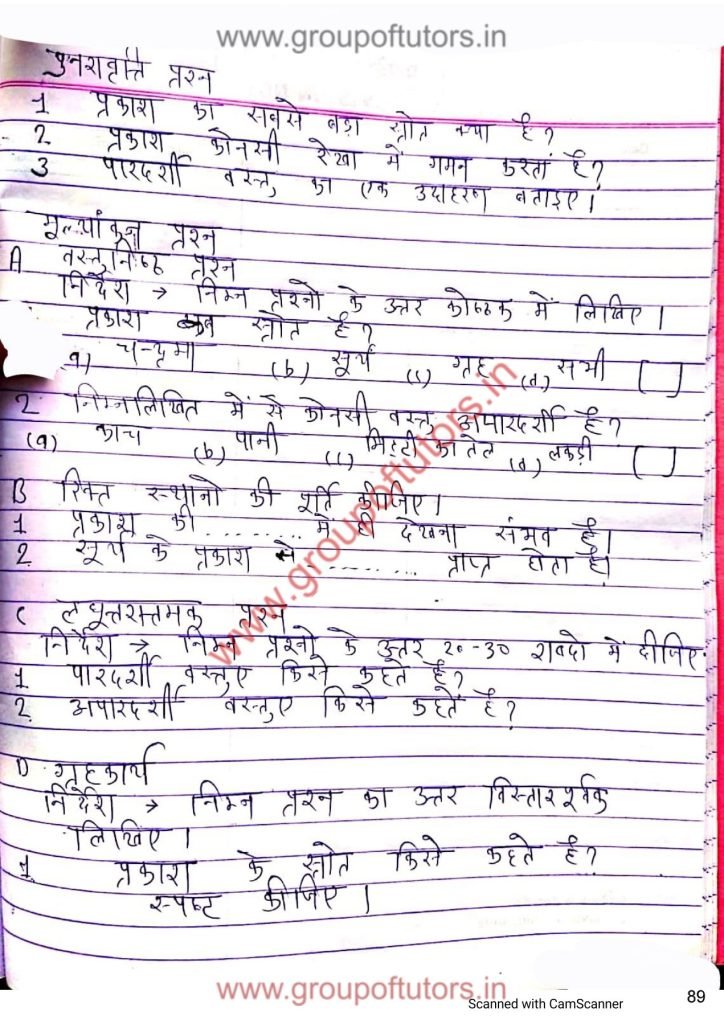 www.groupoftutors.in
पुनरावृत्ति प्रश्न
1 प्रकाश का सबसे बड़ा स्रोत क्या है?
2 प्रकाश कोनसी रेखा में गमन करता है?
3 पारदर्शी वस्तु का एक उदाहरण बताइए।
मूल्यांकन प्रश्न
A वस्तुनिष्ठ प्रश्न
निर्देश → निम्न प्रश्नो के उत्तर कोष्ठक में लिखिए।
प्रकाश का स्रोत है?
a) चन्द्रमा (b) सूर्य (c) ग्रह (d) सभी [ ]
2 निम्नलिखित में से कोनसी वस्तु अपारदर्शी है?
(a) काच (b) पानी (c) मिट्टी का तेल (d) लकड़ी [ ]
B रिक्त स्थानो की पूर्ति कीजिए।
1 प्रकाश की .......... में ही देखना संभव है।
2 सूर्य के प्रकाश से .......... प्राप्त होता है।
C लघुत्तरात्मक प्रश्न
निर्देश → निम्न प्रश्नो के उत्तर 20-30 शब्दो में दीजिए
1 पारदर्शी वस्तुए किसे कहते है?
2 अपारदर्शी वस्तुए किसे कहते है?
D ग्रहकार्य
निर्देश → निम्न प्रश्न का उत्तर विस्तारपूर्वक
लिखिए।
1 प्रकाश के स्रोत किसे कहते है?
स्पष्ट कीजिए।
www.groupoftutors.in
www.groupoftutors.in
Scanned with CamScanner
89